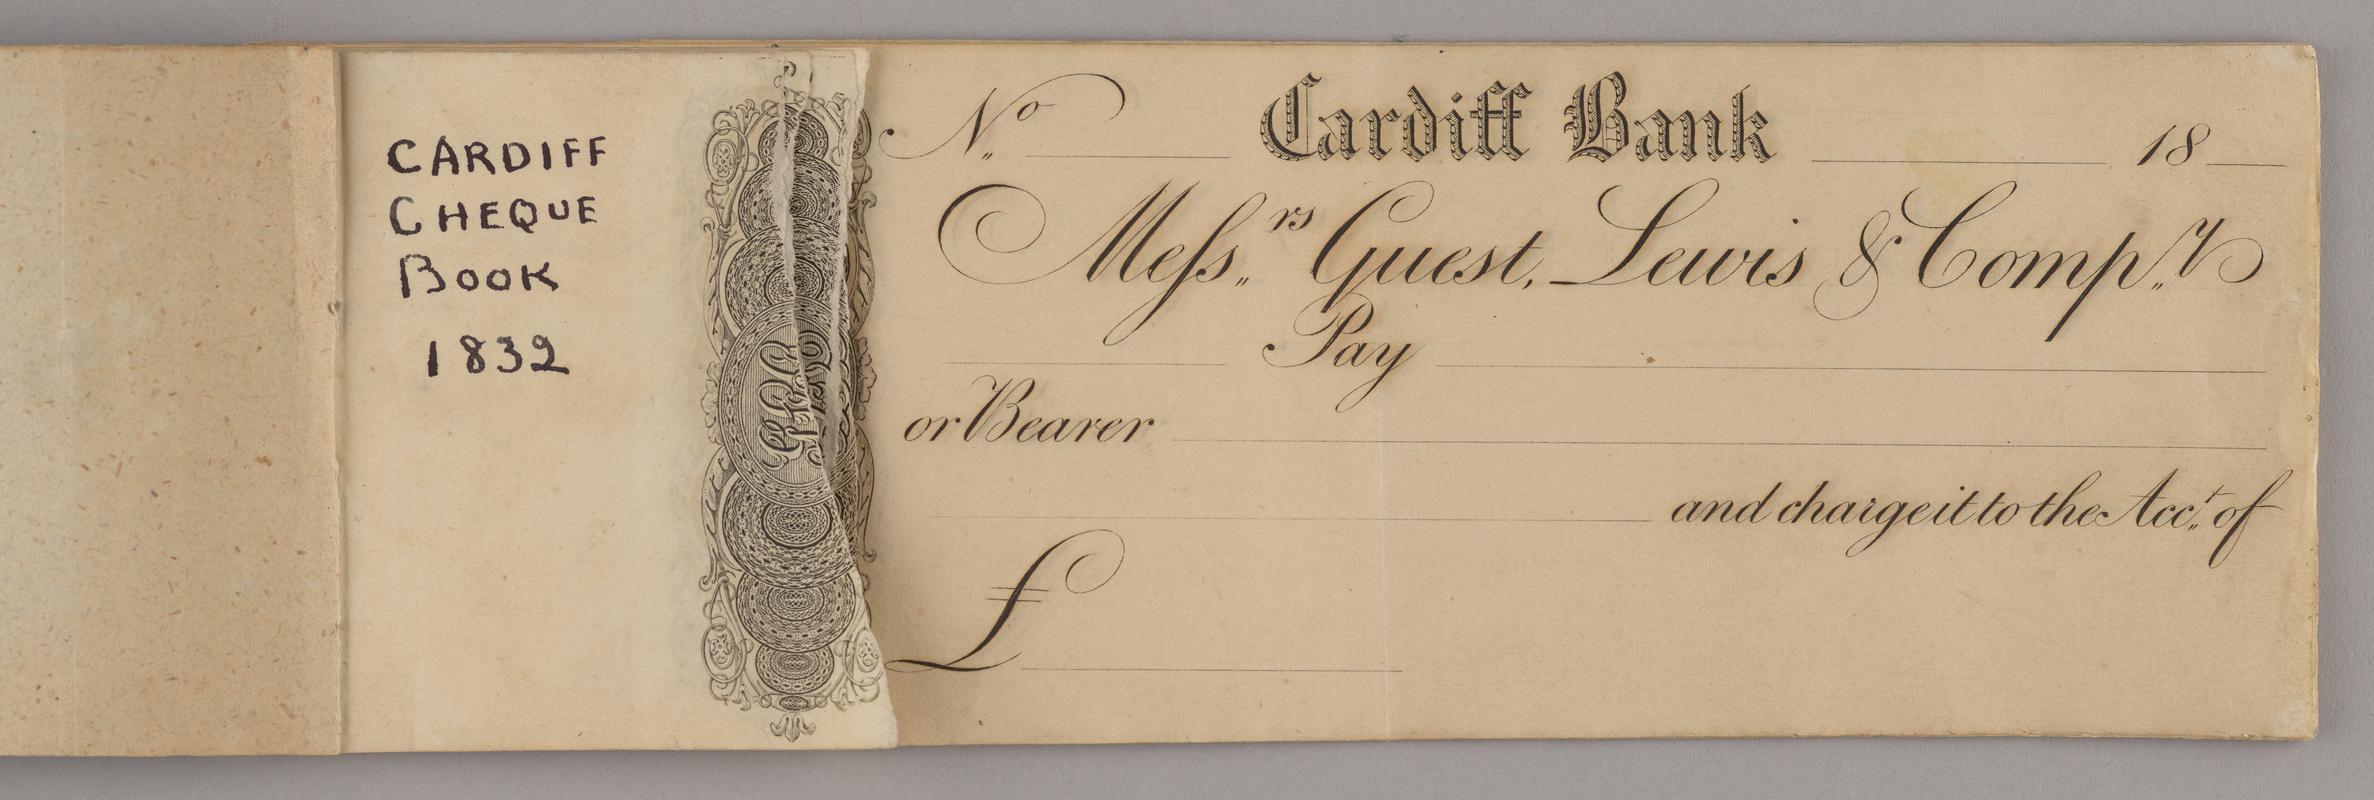 CARDIFF
CHEQUE
BOOK
1832
No Cardiff Bank 18
Messrs Guest, Lewis & Compy
Pay
or Bearer
and charge it to the Acct of
£